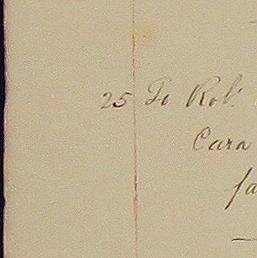 25 To Rob.
Cara
fa